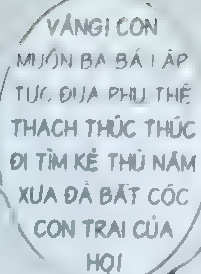 VÂNGI CON
MUỐN BA BÁ LẬP
TỨC ĐƯA PHU THÊ
THẠCH THÚC THÚC
ĐI TÌM KẺ THÙ NĂM
XƯA ĐÃ BẮT CÓC
CON TRAI CỦA
HỌI